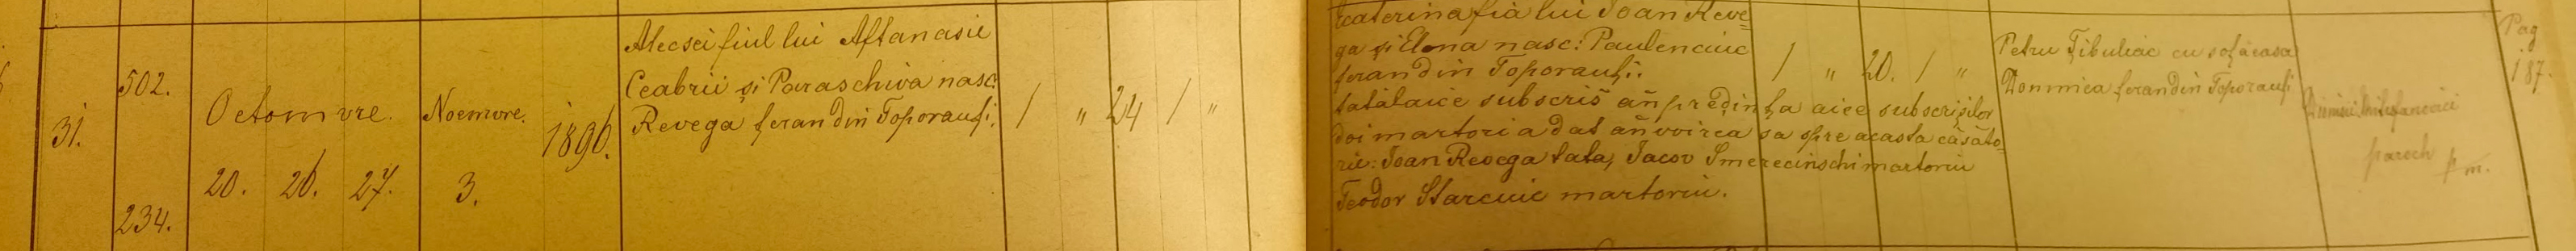 31.
502.
234.
Octomvre.
20. 26. 27.
Noemvre.
3.
1896.
Alecsei fiul lui Aftanasie
Ceabrii și Paraschiva nasc:
Revega țeran din Toporauți.
1 " 24 1 "
Ecaterina fia lui Ioan Reve=
ga și Elena nasc: Paulenciuc
țeran din Toporauți.
tatălaice subscris añ predința aice subscrișilor
doi martori a dat añvoirea sa spre acasta căsăto=
rie: Ioan Revega tata, Iacov Smerecinschi martoriu
Teodor Starciuc martoriu.
1 " 20. 1 "
Petru Țibuliac cu soța casa
Domnica țeran din Toporauți
paroch
Pag
187.